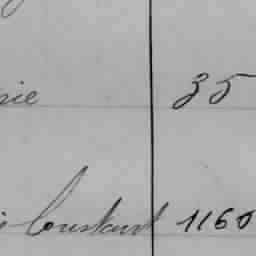 35
Constant 1160